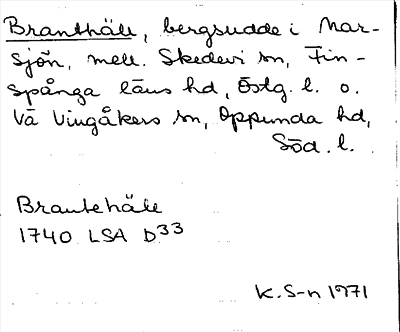 Branthäll, bergsudde i Mar-
sjön, mell. Skedevi sn, Fin-
spånga läns hd, Östg. l. o.
Vä Vingåkers sn, Oppunda hd,
Söd. l.
Brantehäll
1740 LSA D33
K. S-n 1971